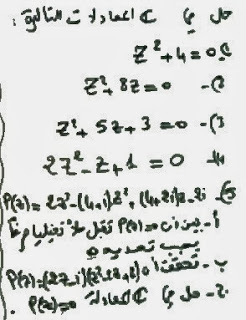 حل في C المعادلات التالية :
Z² + 4 = 0
Z² + 8Z = 0
Z² + 5Z + 3 = 0
2Z² - Z + 1 = 0
P(z) = 2Z³ - (4+i)Z² + (4+2i)Z - 2i
أ - بين أن P(z) = 0 تقبل حلا تخيليا
يجب تحديده
ب - تحقق أن P(z) = (2Z - i)(Z² - 2Z + 2)
ج - حل في C المعادلة P(z) = 0